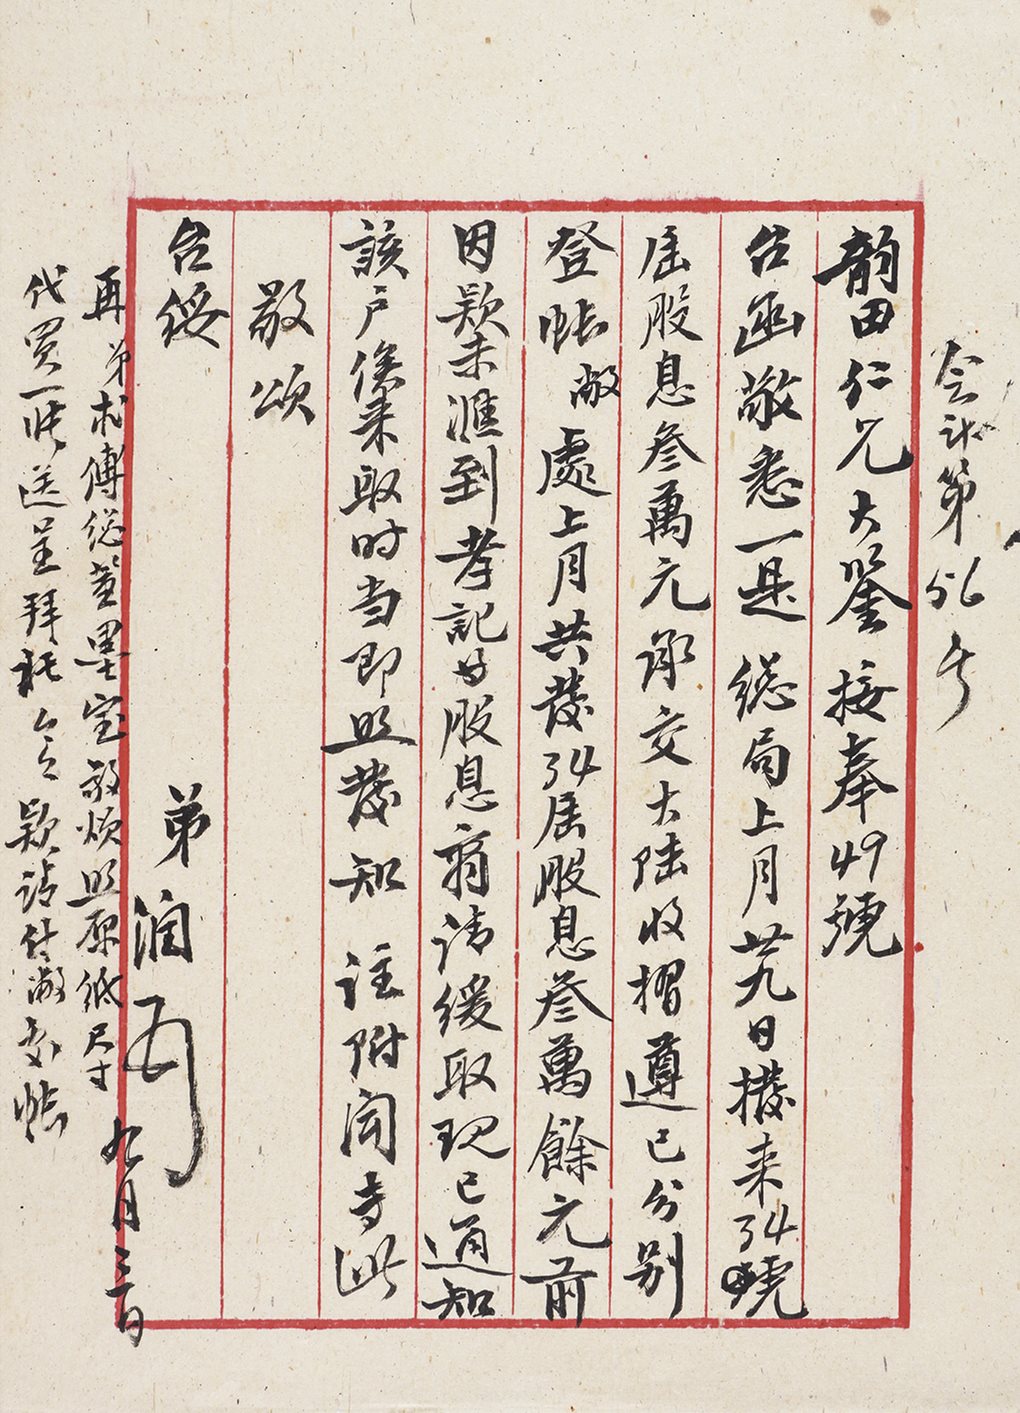 会计第56号
韵田仁兄大鉴 接奉49號
台函敬悉一是 總局上月廿九日撥来34號
届股息叁萬元承交大陆收摺遵已分别
登帐敝處上月共發34届股息叁萬餘元前
因款未滙到孝記等股息請缓取现已通知
該户俟来取时当即照發知注附闻专此
敬颂
台绥
弟润 九月三日
再弟求傅總董墨宝敬烦照原纸尺寸
代买一张送呈拜託之款請付敝支帐